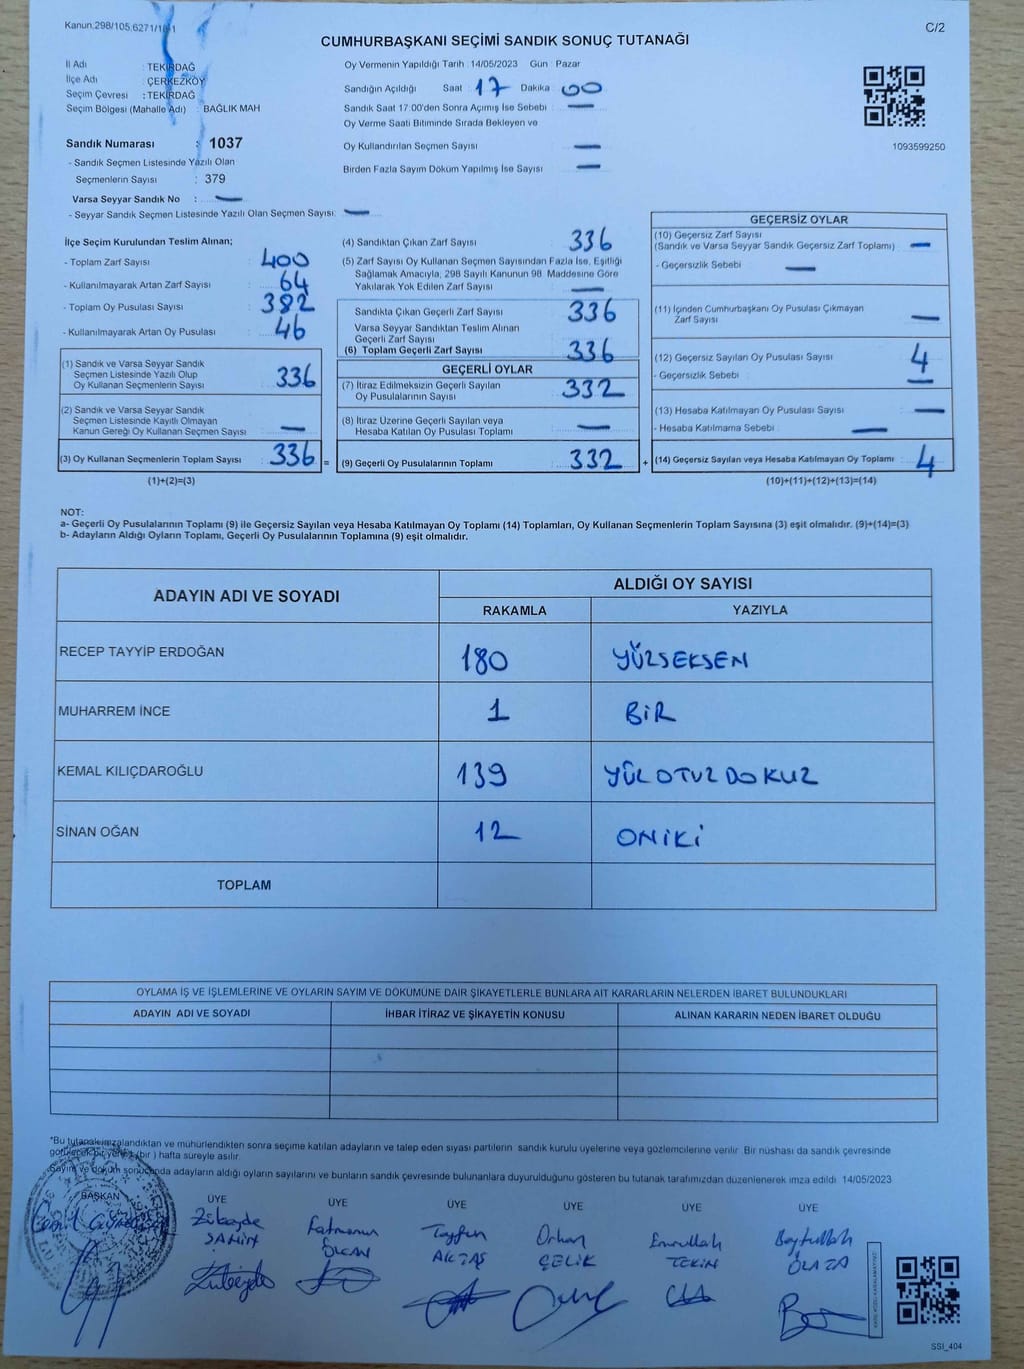 Kanun.298/105.6271/10-1
C/2
CUMHURBAŞKANI SEÇİMİ SANDIK SONUÇ TUTANAĞI
İl Adı : TEKİRDAĞ
İlçe Adı : ÇERKEZKÖY
Seçim Çevresi : TEKİRDAĞ
Seçim Bölgesi (Mahalle Adı) : BAĞLIK MAH
Sandık Numarası : 1037
- Sandık Seçmen Listesinde Yazılı Olan
Seçmenlerin Sayısı : 379
Varsa Seyyar Sandık No : —
- Seyyar Sandık Seçmen Listesinde Yazılı Olan Seçmen Sayısı: —
Oy Vermenin Yapıldığı Tarih : 14/05/2023 Gün : Pazar
Sandığın Açıldığı Saat : 17 Dakika : 00
Sandık Saat 17:00'den Sonra Açımış İse Sebebi : —
Oy Verme Saati Bitiminde Sırada Bekleyen ve
Oy Kullandırılan Seçmen Sayısı : —
Birden Fazla Sayım Döküm Yapılmış İse Sayısı : —
1093599250
İlçe Seçim Kurulundan Teslim Alınan;
- Toplam Zarf Sayısı : 400
- Kullanılmayarak Artan Zarf Sayısı : 64
- Toplam Oy Pusulası Sayısı : 382
- Kullanılmayarak Artan Oy Pusulası : 46
(1) Sandık ve Varsa Seyyar Sandık
Seçmen Listesinde Yazılı Olup
Oy Kullanan Seçmenlerin Sayısı : 336
(2) Sandık ve Varsa Seyyar Sandık
Seçmen Listesinde Kayıtlı Olmayan
Kanun Gereği Oy Kullanan Seçmen Sayısı : —
(3) Oy Kullanan Seçmenlerin Toplam Sayısı : 336 =
(1)+(2)=(3)
(4) Sandıktan Çıkan Zarf Sayısı : 336
(5) Zarf Sayısı Oy Kullanan Seçmen Sayısından Fazla İse, Eşitliği
Sağlamak Amacıyla; 298 Sayılı Kanunun 98. Maddesine Göre
Yakılarak Yok Edilen Zarf Sayısı : —
Sandıkta Çıkan Geçerli Zarf Sayısı : 336
Varsa Seyyar Sandıktan Teslim Alınan
Geçerli Zarf Sayısı
(6) Toplam Geçerli Zarf Sayısı : 336
GEÇERLİ OYLAR
(7) İtiraz Edilmeksizin Geçerli Sayılan
Oy Pusulalarının Sayısı : 332
(8) İtiraz Üzerine Geçerli Sayılan veya
Hesaba Katılan Oy Pusulası Toplamı : —
(9) Geçerli Oy Pusulalarının Toplamı : 332 +
GEÇERSİZ OYLAR
(10) Geçersiz Zarf Sayısı
(Sandık ve Varsa Seyyar Sandık Geçersiz Zarf Toplamı) : —
- Geçersizlik Sebebi : —
(11) İçinden Cumhurbaşkanı Oy Pusulası Çıkmayan
Zarf Sayısı : —
(12) Geçersiz Sayılan Oy Pusulası Sayısı : 4
- Geçersizlik Sebebi : —
(13) Hesaba Katılmayan Oy Pusulası Sayısı : —
- Hesaba Katılmama Sebebi : —
(14) Geçersiz Sayılan veya Hesaba Katılmayan Oy Toplamı : 4
(10)+(11)+(12)+(13)=(14)
NOT:
a- Geçerli Oy Pusulalarının Toplamı (9) ile Geçersiz Sayılan veya Hesaba Katılmayan Oy Toplamı (14) Toplamları, Oy Kullanan Seçmenlerin Toplam Sayısına (3) eşit olmalıdır. (9)+(14)=(3)
b- Adayların Aldığı Oyların Toplamı, Geçerli Oy Pusulalarının Toplamına (9) eşit olmalıdır.
ADAYIN ADI VE SOYADI ALDIĞI OY SAYISI
RAKAMLA YAZIYLA
RECEP TAYYİP ERDOĞAN 180 YÜZSEKSEN
MUHARREM İNCE 1 BİR
KEMAL KILIÇDAROĞLU 139 YÜZ OTUZ DOKUZ
SİNAN OĞAN 12 ONİKİ
TOPLAM
OYLAMA İŞ VE İŞLEMLERİNE VE OYLARIN SAYIM VE DÖKÜMÜNE DAİR ŞİKAYETLERLE BUNLARA AİT KARARLARIN NELERDEN İBARET BULUNDUKLARI
ADAYIN ADI VE SOYADI İHBAR İTİRAZ VE ŞİKAYETİN KONUSU ALINAN KARARIN NEDEN İBARET OLDUĞU
*Bu tutanak imzalandıktan ve mühürlendikten sonra seçime katılan adayların ve talep eden siyasi partilerin sandık kurulu üyelerine veya gözlemcilerine verilir. Bir nüshası da sandık çevresinde
görülecek bir yerde (bir ) hafta süreyle asılır.
Sayım ve döküm sonucunda adayların aldığı oyların sayılarını ve bunların sandık çevresinde bulunanlara duyurulduğunu gösteren bu tutanak tarafımızdan düzenlenerek imza edildi. 14/05/2023
BAŞKAN ÜYE ÜYE ÜYE ÜYE ÜYE ÜYE
Zübeyde Fatmanur Tayfun Orhan Emrullah Beytullah
ŞAHİN AKTAŞ ÇELİK TEKİN
SSI_404